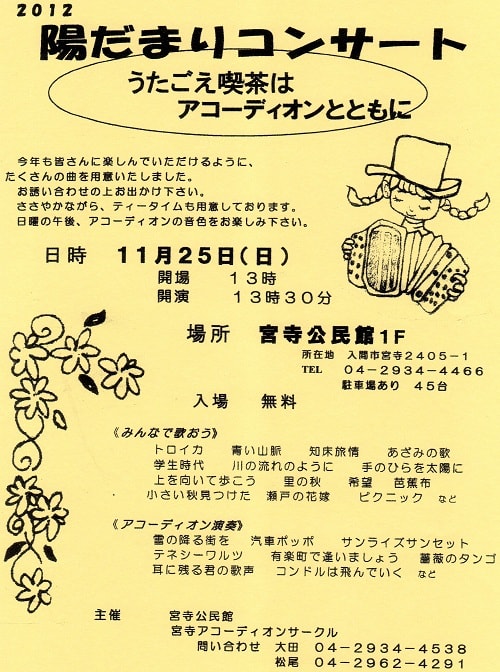 2012
陽だまりコンサート
うたごえ喫茶は
アコーディオンとともに
今年も皆さんに楽しんでいただけるように、
たくさんの曲を用意いたしました。
お誘い合わせの上お出かけ下さい。
ささやかながら、ティータイムも用意しております。
日曜の午後、アコーディオンの音色をお楽しみ下さい。
日時 11月25日(日)
開場 13時
開演 13時30分
場所 宮寺公民館1F
所在地 入間市宮寺2405-1
TEL 04-2934-4466
駐車場あり 45台
入場 無料
《みんなで歌おう》
トロイカ 青い山脈 知床旅情 あざみの歌
学生時代 川の流れのように 手のひらを太陽に
上を向いて歩こう 里の秋 希望 芭蕉布
小さい秋見つけた 瀬戸の花嫁 ピクニック など
《アコーディオン演奏》
雪の降る街を 汽車ポッポ サンライズサンセット
テネシーワルツ 有楽町で逢いましょう 薔薇のタンゴ
耳に残る君の歌声 コンドルは飛んでいく など
主催 宮寺公民館
宮寺アコーディオンサークル
問い合わせ 大田 04-2934-4538
松尾 04-2962-4291